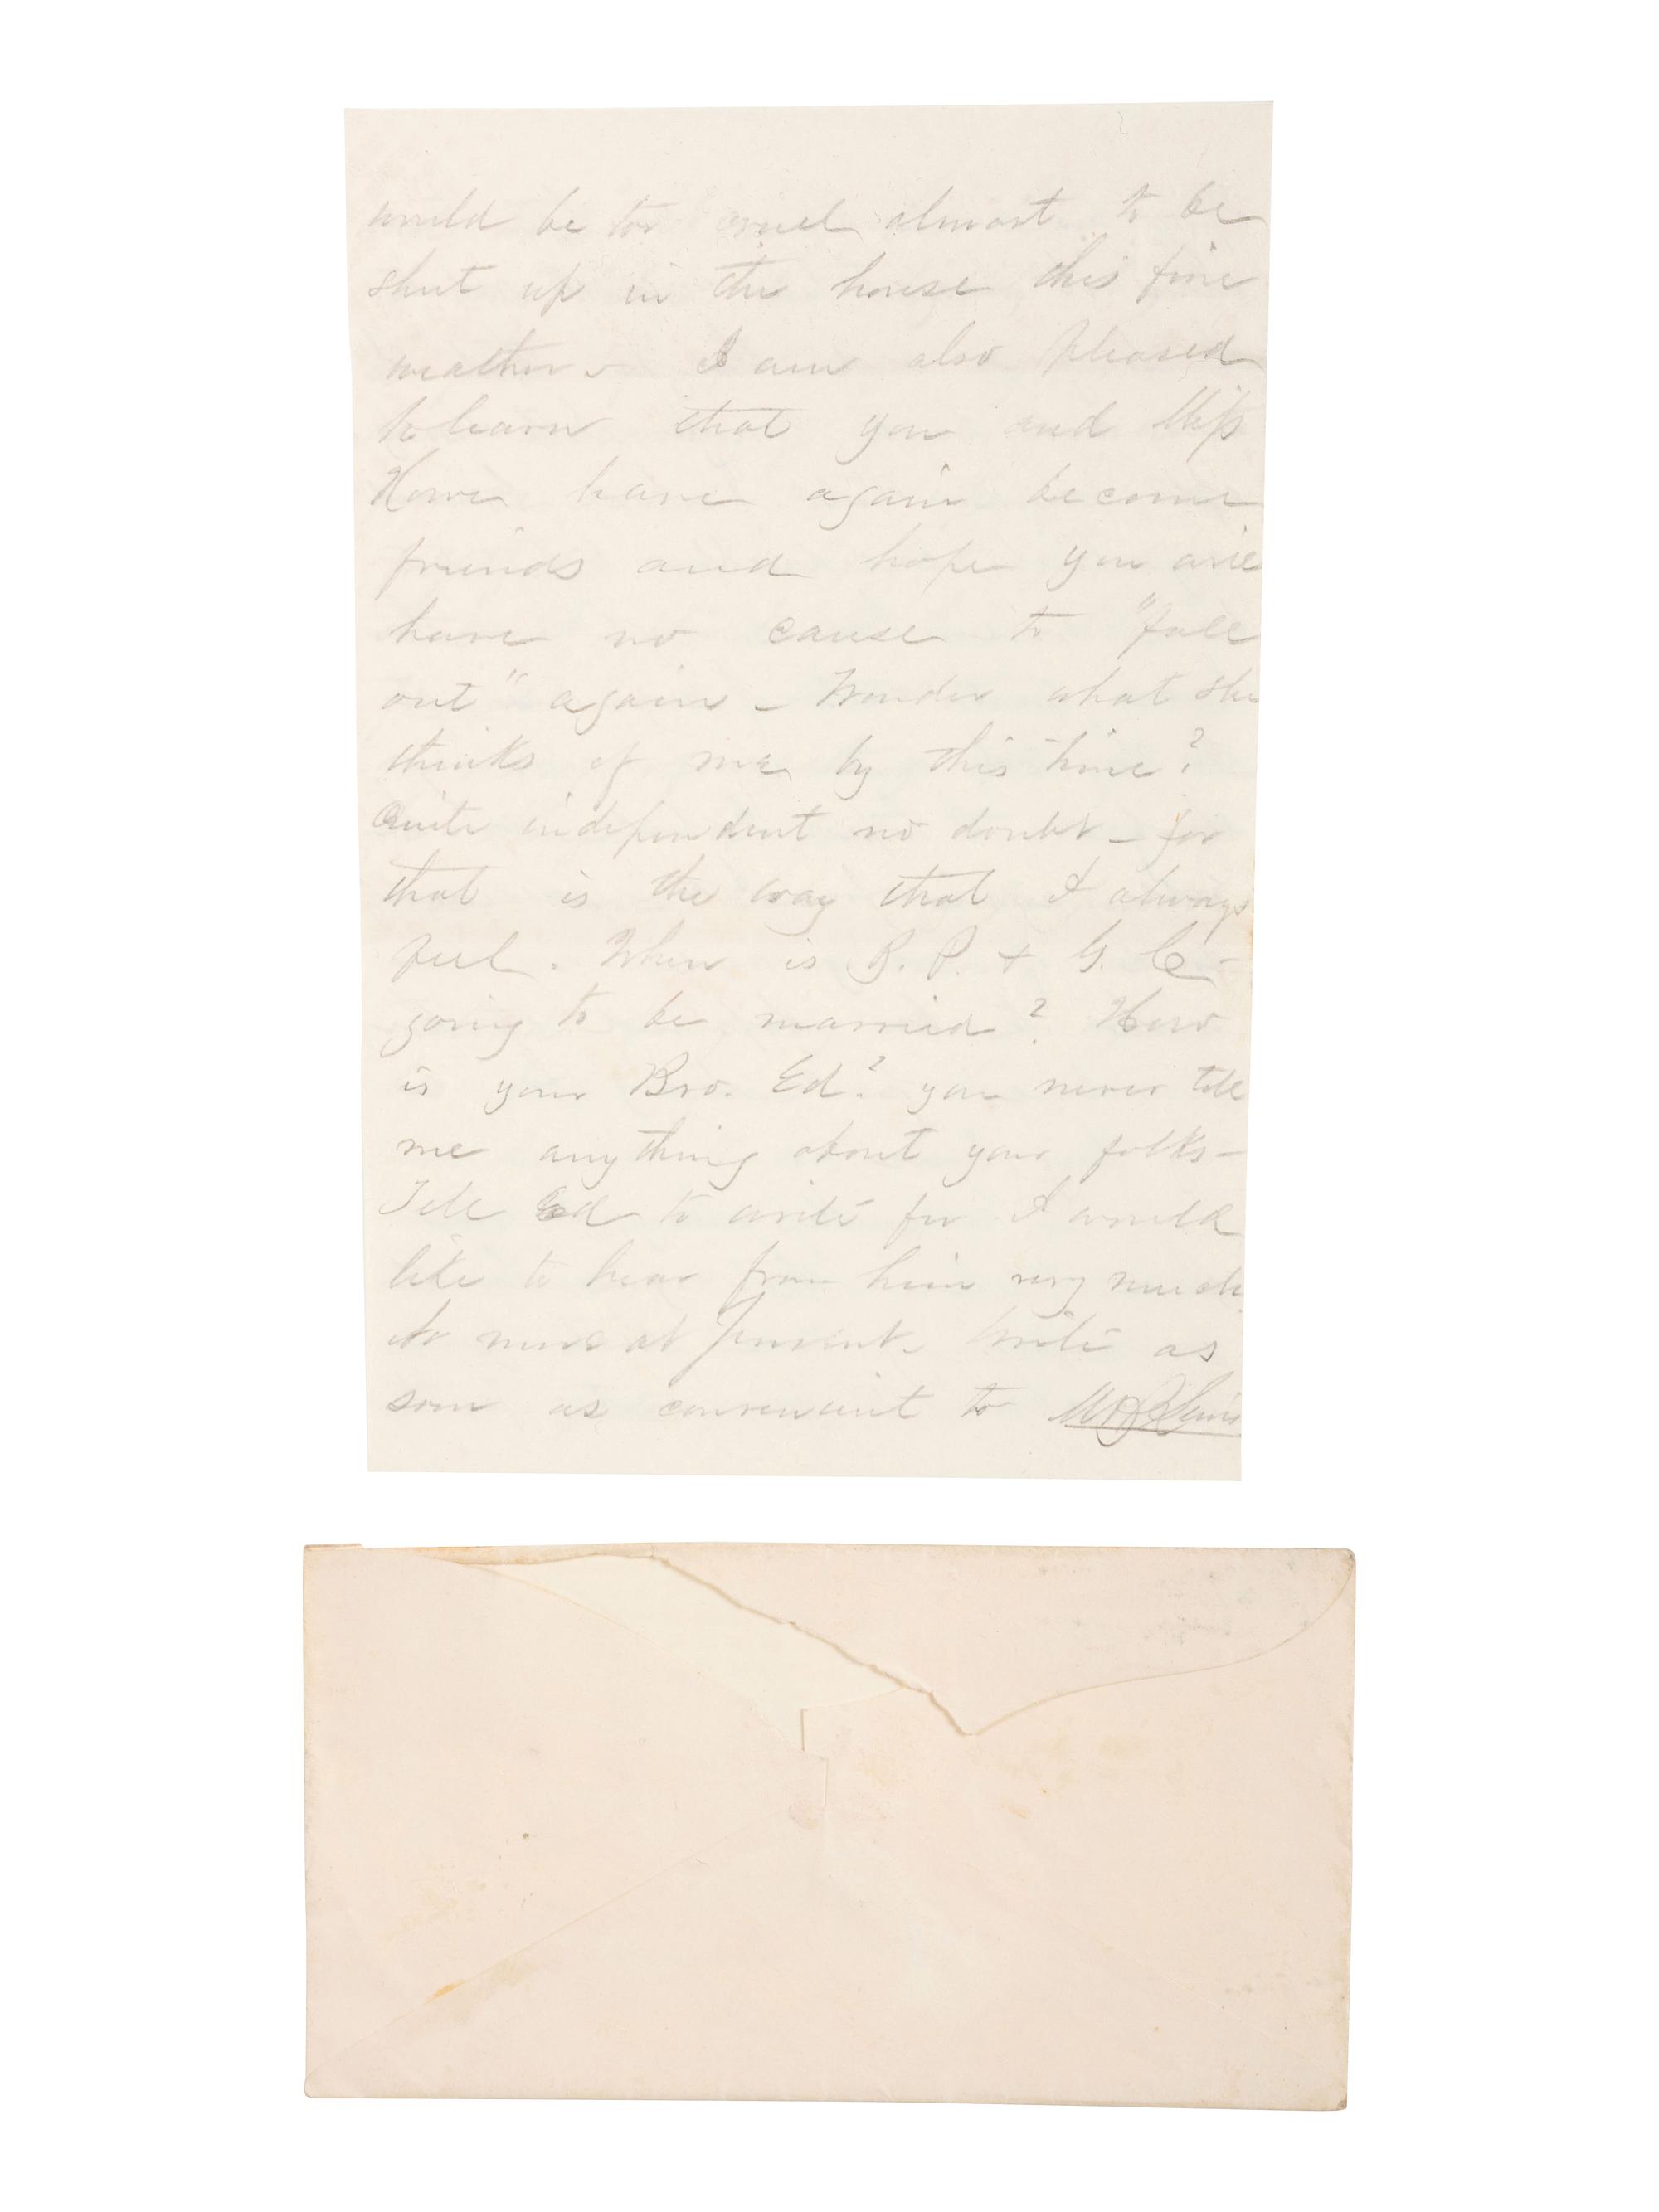 would be too cruel almost to be
shut up in the house this fine
weather - I am also pleased
to learn that you and Miss
Howe have again become
friends and hope you will
have no cause to "fall
out" again - Wonder what she
thinks of me by this time?
Quite independent no doubt - for
that is the way that I always
feel. When is B. P. + G. C -
going to be married? How
is your Bro. Ed.? you never tell
me anything about your folks -
Tell Ed to write for I would
like to hear from him very much
No more at present. Write as
soon as convenient to